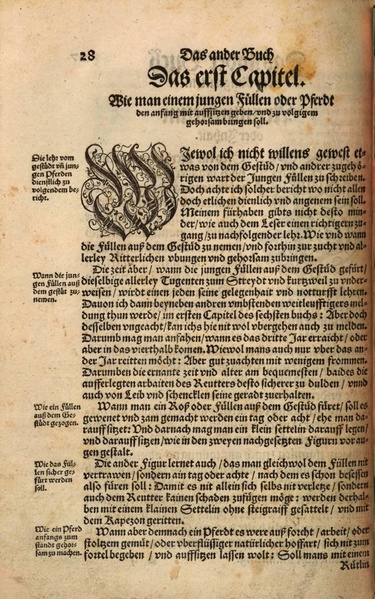 28
Das ander Buch
Das erst Capitel.
Wie man einem jungen Füllen oder Pferdt
den anfang mit auffsitzen geben/vnd zu volgigem
gehorsam bringen soll.
Die lehr vom
gestüdt vñ jun-
gen Pferden
dienstlich zu
volgendem be-
richt.
WJewol ich nicht willens gewest et-
was von dem Gestüd/ vnd andrer zugehö-
rigen wart der Jungen Füllen zu schreiben.
Doch achte ich solcher bericht wo nicht allen
doch etlichen dienlich vnd angenem sein soll.
Meinem fürhaben gibts nicht desto min-
der/wie auch dem Leser einen richtigern zu-
gang/zu nachfolgender lehr. Wie vnd wann
die Füllen auß dem Gestüd zu nemen/vnd forthin zur zucht vnd al-
lerley Ritterlichen vbungen vnd gehorsam zubringen.
Wann die jun-
gen Füllen auß
dem gestüt zu-
nemen.
Die zeit aber/ wann die jungen Füllen auß dem Gestüd gefürt/
dieselbige allerley Tugenten zum Streydt vnd kurtzweil zu vnder-
weisen/ wirdt einen jeden seine gelegenheit vnd notturfft lehren.
Dauon ich dann beyneben andren vmbstenden weitleufftigers mel-
dung thun werde/im ersten Capitel des sechsten buchs: Aber doch
desselben vngeacht/kan ichs hie nit wol vbergehen auch zu melden.
Darumb mag man anfahen/wann es das dritte Jar erraicht/oder
aber in das vierthalb komen. Wiewol mans auch nur vber das an-
der Jar reitten möcht: Aber gut zuachten mit wenigem frommen.
Darumben die ernante zeit vnd alter am bequemesten/ baides die
aufferlegten arbaiten des Reutters desto sicherer zu dulden/ vnnd
auch von Leib vnd schenckeln seine geradt zuerhalten.
Wie ein Füllen
auß dem Ge-
stüdt gezogen.
Wann man ein Roß oder Füllen auß dem Gestüd füret/ soll es
gewenet vnd zam gemacht werden ein tag oder acht/ ehe man da-
rauff sitzet: Vnd darnach mag man ein klein setteln darauff legen/
vnd darauff sitzen/wie in den zweyen nachgesetzten Figurn vor au-
gen gestalt.
Wie das Fül-
len sicher ge-
fürt werden
soll.
Die ander Figur lernet auch/ das man gleichwol dem Füllen nit
vertrawen/ sondern ain tag oder achte/ nach dem es schon besessen
also füren soll: Damit es nit allein sich selbs nit verletze/ sondern
auch dem Reutter kainen schaden zufügen möge: werden derhal-
ben mit einem klainen Settelin ohne steigraiff gesattelt/ vnd mit
dem Kapezon geritten.
Wie ein Pferd
anfangs zum
ständt gehor-
sam zu machen.
Wann aber demnach ein Pferdt es were auß forcht/ arbeit/ oder
stoltzem gemüt/oder vberflüssiger natürlicher hoffart/ sich nit zum
fortel begeben/ vnd auffsitzen lassen wolt: Soll mans mit einem
Rütlin